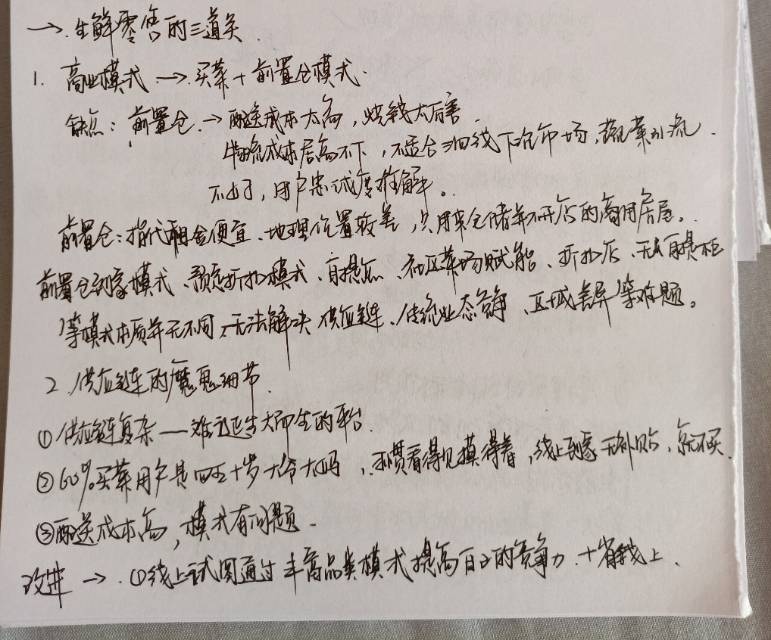 → 生鲜零售的三道关
1. 商业模式 → 买菜+前置仓模式.
缺点：前置仓 → 配送成本太高，烧钱太厉害
物流成本居高不下，不适合三四线下沉市场，蔬菜引流
不由，用户忠诚度难解。
前置仓：指代租金便宜、地理位置较差，只用来仓储并不开店的商用居屋。
前置仓到家模式、预定折扣模式、自提点、社区菜场赋能、折扣店、无人自提柜
等模式本质并无不同，无法解决供应链、传统业态竞争、区域差异等难题。
2. 供应链的魔鬼细节
①供应链复杂——难诞生大而全的平台.
②60%买菜用户是四五十岁大爷大妈，习惯看得见摸得着，线上到家无补贴，就不买.
③配送成本高，模式有问题.
改进 → ①线上试图通过丰商品类模式提高自己的竞争力.+省钱上.